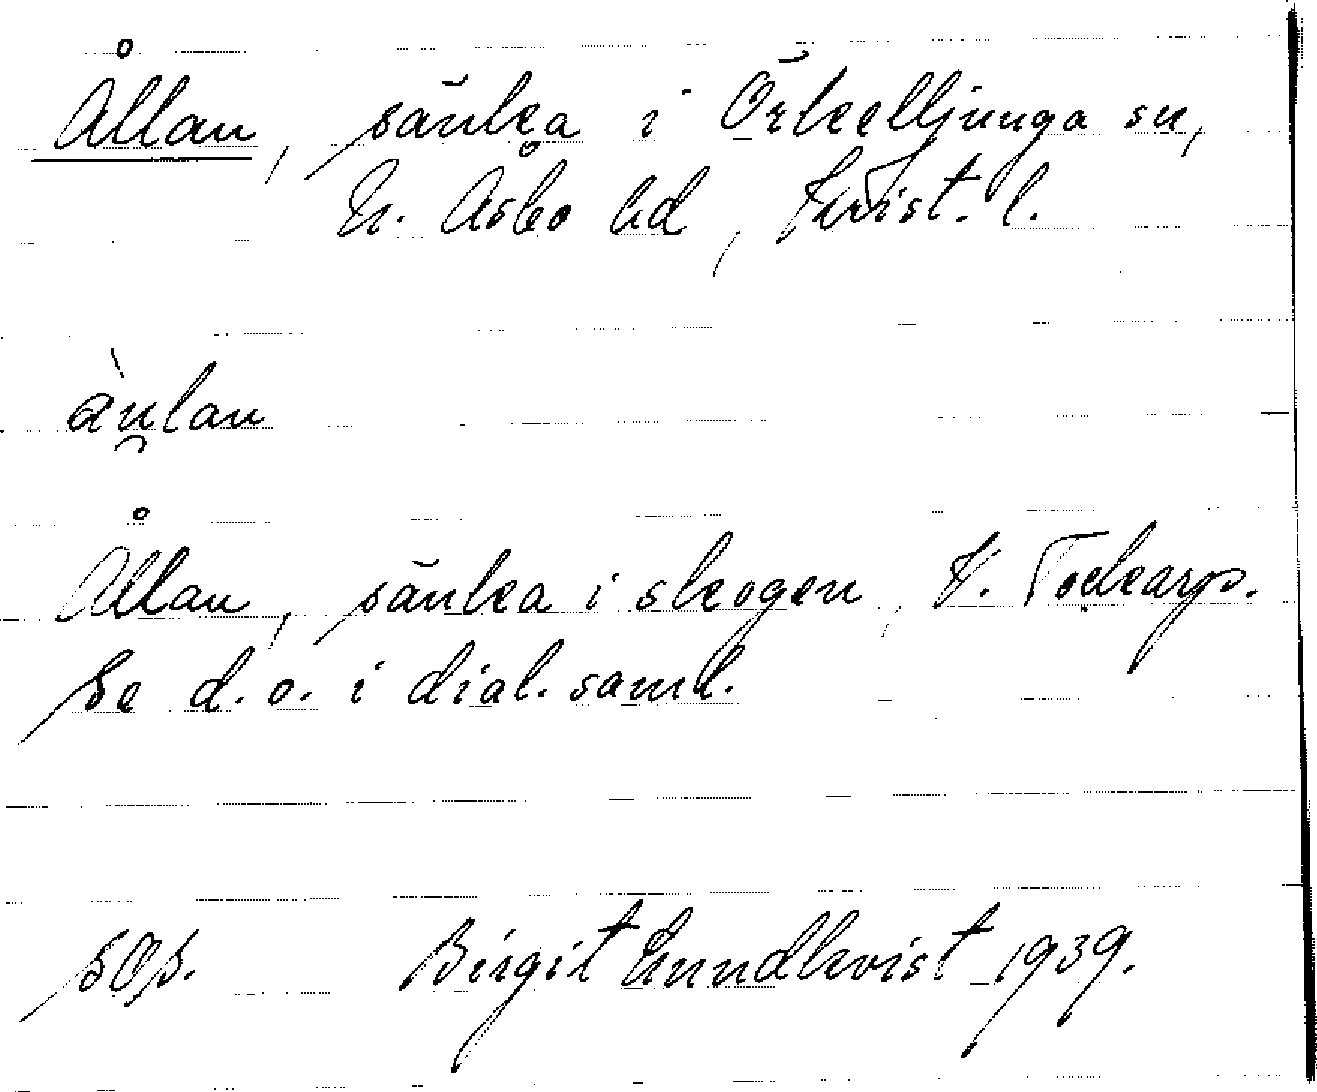 Ållan, sänka i Örkelljunga sn,
N. Åsbo hd, Krist. l.
àu̯lan
Ållan, sänka i skogen, V. Tockarp.
Se d.o. i dial. saml.
Birgit Lundkvist 1939.